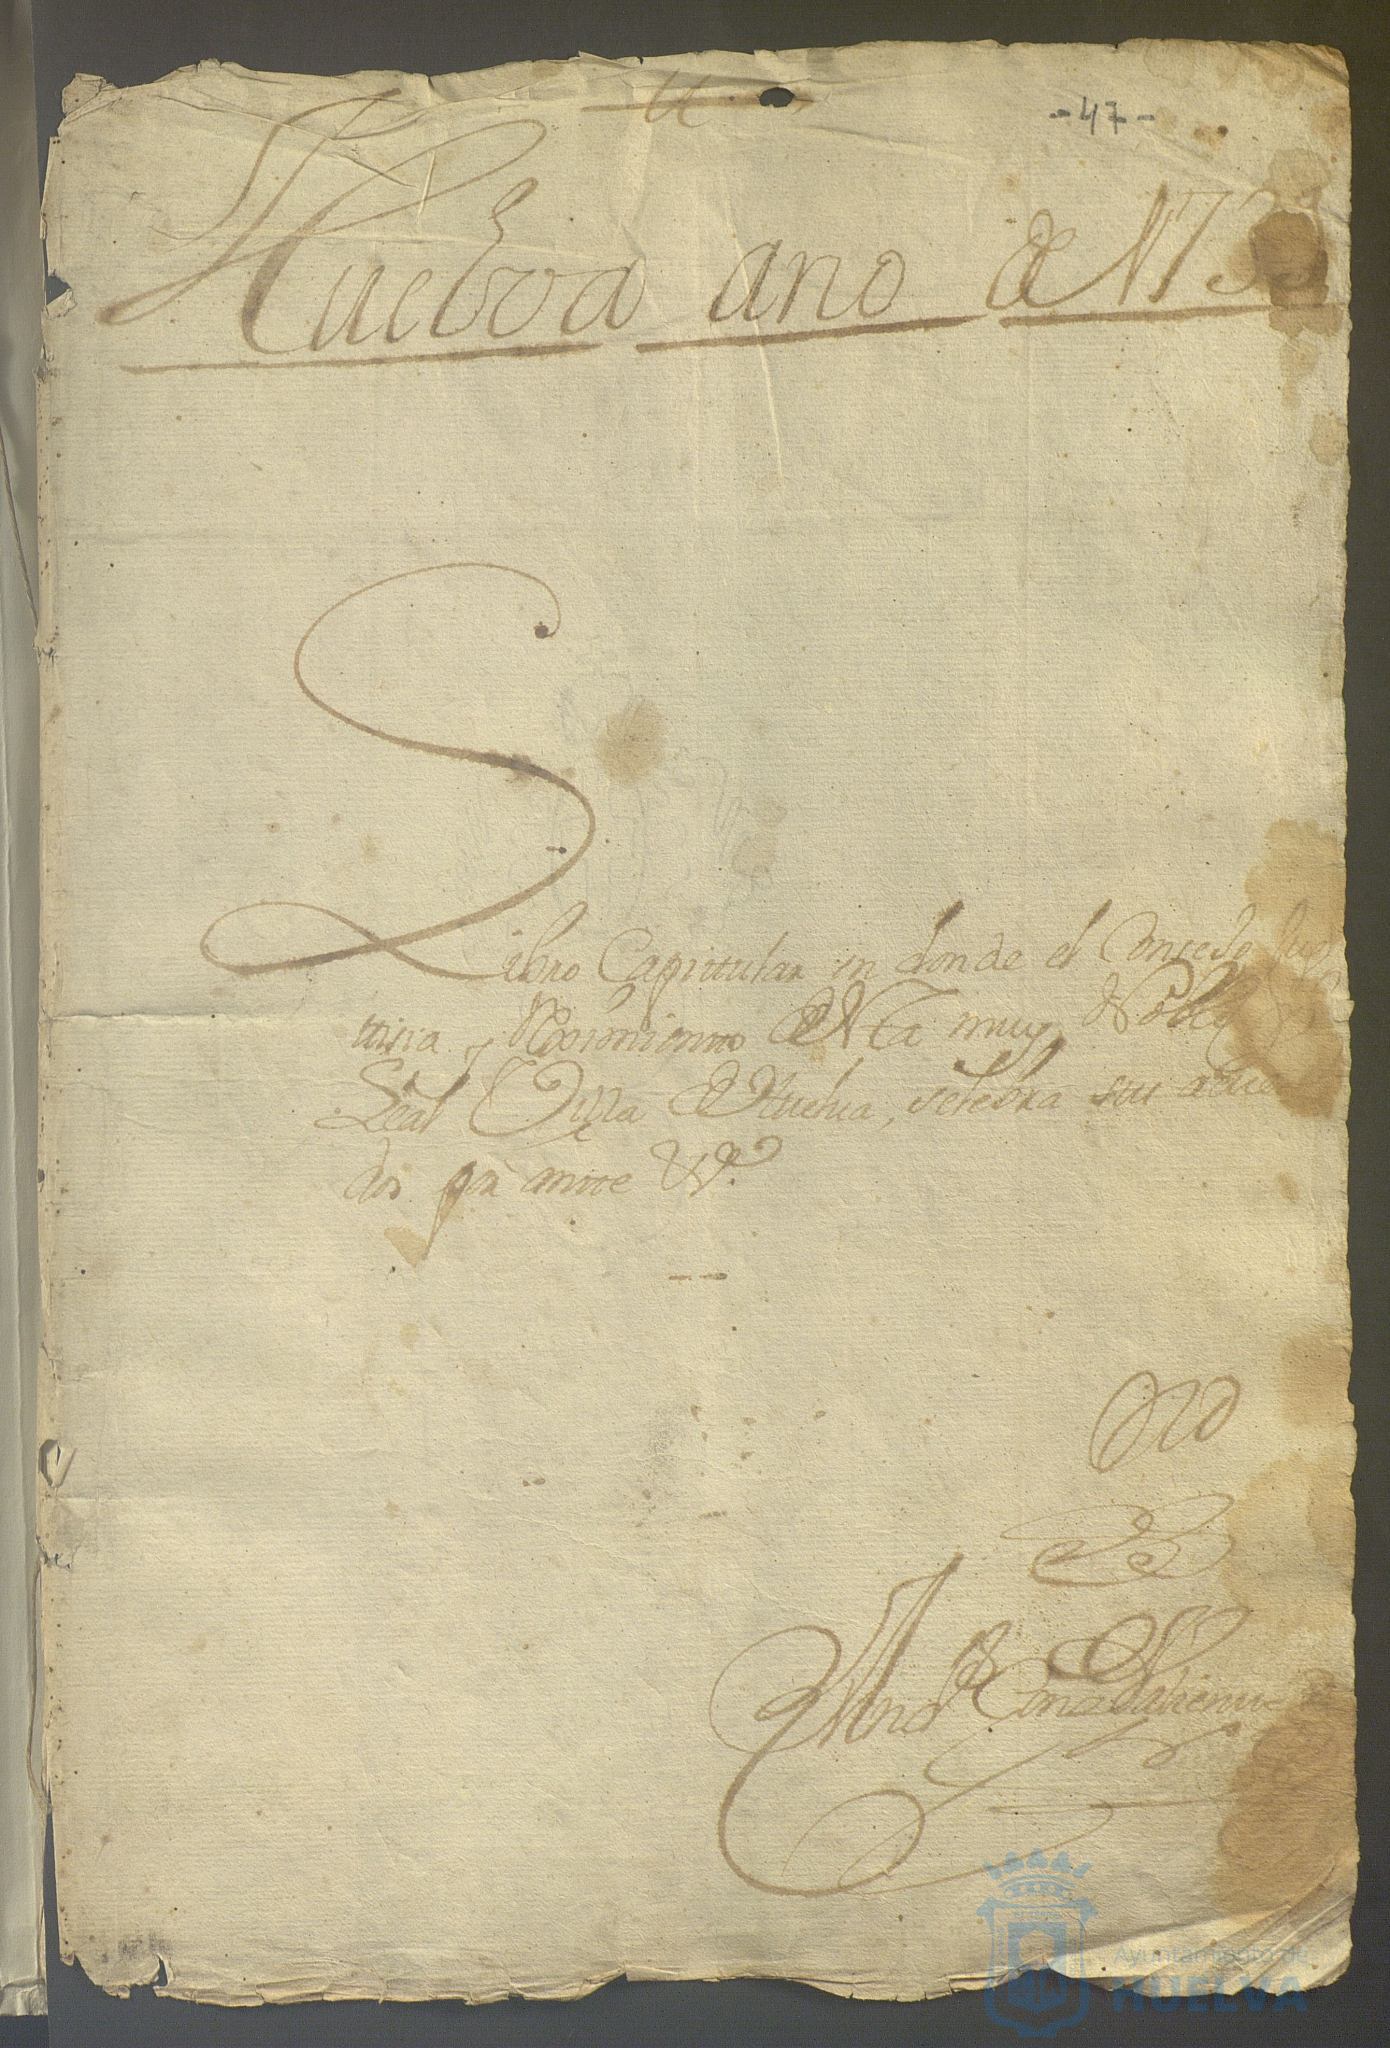 -47-
Huelva ano de 173
Libro Capitular en donde el Consejo Jus
ticia y Reximiento desta muy Noble y
Leal Villa de Huelva, selebra sus acuer
dos por ante
Ayuntamiento de
HUELVA